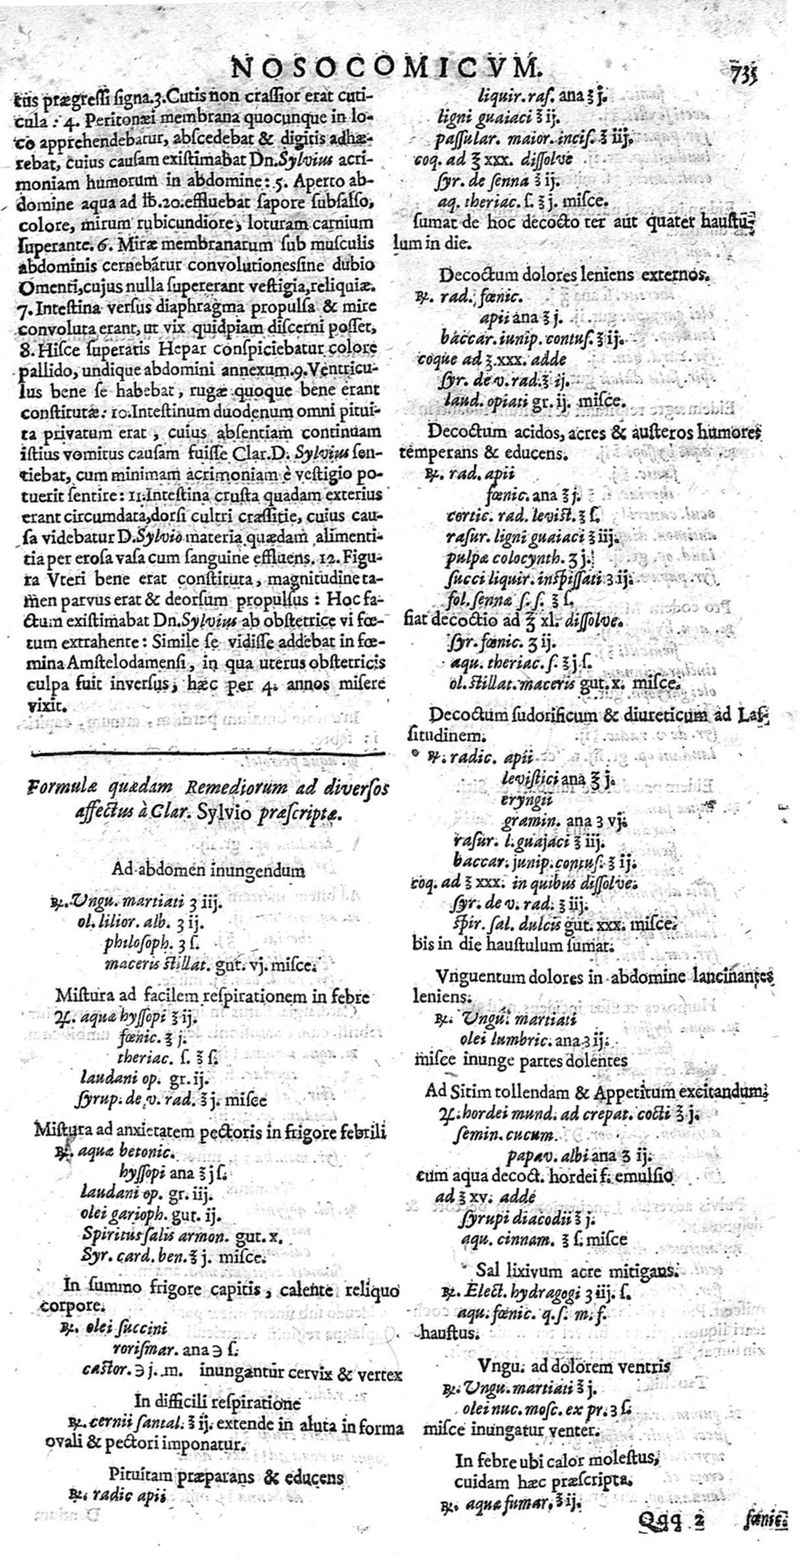 NOSOCOMICVM. 735
tus prægressi signa. 3. Cutis non crassior erat cuti-
cula: 4. Peritonæi membrana quocunque in lo-
co apprehendebatur, abscedebat & digitis adhæ-
rebat, cuius causam existimabat Dn. Sylvius acri-
moniam humorum in abdomine: 5. Aperto ab-
domine aqua ad ℔. 20. effluebat sapore subsalso,
colore, mirum rubicundiore, loturam carnium
superante. 6. Miræ membranarum sub musculis
abdominis cernebãtur convolutiones sine dubio
Omenti, cujus nulla supererant vestigia, reliquiæ.
7. Intestina versus diaphragma propulsa & mire
convoluta erant, ut vix quidpiam discerni posset,
8. Hisce superatis Hepar conspiciebatur colore
pallido, undique abdomini annexum. 9. Ventricu-
lus bene se habebat, rugæ quoque bene erant
constitutæ: 10. Intestinum duodenum omni pitui-
ta privatum erat, cuius absentiam continuam
istius vomitus causam fuisse Clar. D. Sylvius sen-
tiebat, cum minimam acrimoniam è vestigio po-
tuerit sentire: 11. Intestina crusta quadam exterius
erant circumdata, dorsi cultri crassitie, cuius cau-
sa videbatur D. Sylvio materia quædam alimenti-
tia per erosa vasa cum sanguine effluens. 12. Figu-
ra Vteri bene erat constituta, magnitudine ta-
men parvus erat & deorsum propulsus: Hoc fa-
ctum existimabat Dn. Sylvius ab obstetrice vi fœ-
tum extrahente: Simile se vidisse addebat in fœ-
mina Amstelodamensi, in qua uterus obstetricis
culpa fuit inversus, hæc per 4. annos misere
vixit.
Formulæ quædam Remediorum ad diversos
affectus à Clar. Sylvio præscriptæ.
Ad abdomen inungendum
℞. Vngu. martiati ʒ iij.
ol. lilior. alb. ʒ ij.
philosoph. ʒ ſ.
maceris stillat. gut. vj. misce.
Mistura ad facilem respirationem in febre
♃. aquæ hyssopi ℥ ij.
fœnic. ℥ j.
theriac. s. ℥ ſ.
laudani op. gr. ij.
syrup. de v. rad. ℥ j. misce
Mistura ad anxietatem pectoris in frigore febrili
℞. aquæ betonic.
hyssopi ana ℥ j ſ.
laudani op. gr. iij.
olei garioph. gut. ij.
Spiritus salis armon. gut. x.
Syr. card. ben. ℥ j. misce.
In summo frigore capitis, calente reliquo
corpore.
℞. olei succini
rorismar. ana ℈ ſ.
castor. ℈ j. m. inungantur cervix & vertex
In difficili respiratione
℞. cernii santal. ℥ ij. extende in aluta in forma
ovali & pectori imponatur.
Pituitam præparans & educens
℞. radic apii
liquir. ras. ana ℥ j.
ligni guaiaci ℥ ij.
passular. maior. incis. ℥ iij.
coq. ad ℥ xxx. dissolve
syr. de senna ℥ ij.
aq. theriac. s. ℥ j. misce.
sumat de hoc decocto ter aut quater haustu-
lum in die.
Decoctum dolores leniens externos.
℞. rad. fœnic.
apii ana ℥ j.
baccar. iunip. contus. ℥ ij.
coque ad ℥. xxx. adde
syr. de v. rad. ℥ ij.
laud. opiati gr. ij. misce.
Decoctum acidos, acres & austeros humores
temperans & educens.
℞. rad. apii
fœnic. ana ℥ j.
cortic. rad. levist. ℥ ſ.
rasur. ligni guaiaci ℥ iij.
pulpæ colocynth. ʒ j.
succi liquir. inspissati ʒ ij.
fol. sennæ s. s. ℥ ſ.
fiat decoctio ad ℥ xl. dissolve.
syr. fœnic. ℥ ij.
aqu. theriac. s. ℥ j ſ.
ol. stillat. maceris gut. x. misce.
Decoctum sudorificum & diureticum ad Las-
situdinem.
℞. radic. apii
levistici ana ℥ j.
eryngii
gramin. ana ʒ vj.
rasur. l. guajaci ℥ iij.
baccar. junip. contus. ℥ ij.
coq. ad ℥ xxx. in quibus dissolve.
syr. de v. rad. ℥ iij.
spir. sal. dulcis gut. xxx. misce.
bis in die haustulum sumat.
Vnguentum dolores in abdomine lancinantes
leniens.
℞. Vngu. martiati
olei lumbric. ana ʒ ij.
misce inunge partes dolentes
Ad Sitim tollendam & Appetitum excitandum.
♃. hordei mund. ad crepat. cocti ℥ j.
semin. cucum.
papav. albi ana ʒ ij.
cum aqua decoct. hordei f. emulsio
ad ℥ xv. adde
syrupi diacodii ℥ j.
aqu. cinnam. ℥ ſ. misce
Sal lixivum acre mitigans.
℞. Elect. hydragogi ʒ iij. ſ.
aqu. fœnic. q. s. m. f.
haustus.
Vngu. ad dolorem ventris
℞. Vngu. martiati ℥ j.
olei nuc. mosc. ex pr. ʒ ſ.
misce inungatur venter.
In febre ubi calor molestus,
cuidam hæc præscripta.
℞. aquæ fumar. ℥ ij.
Qqq 2 fœnic.